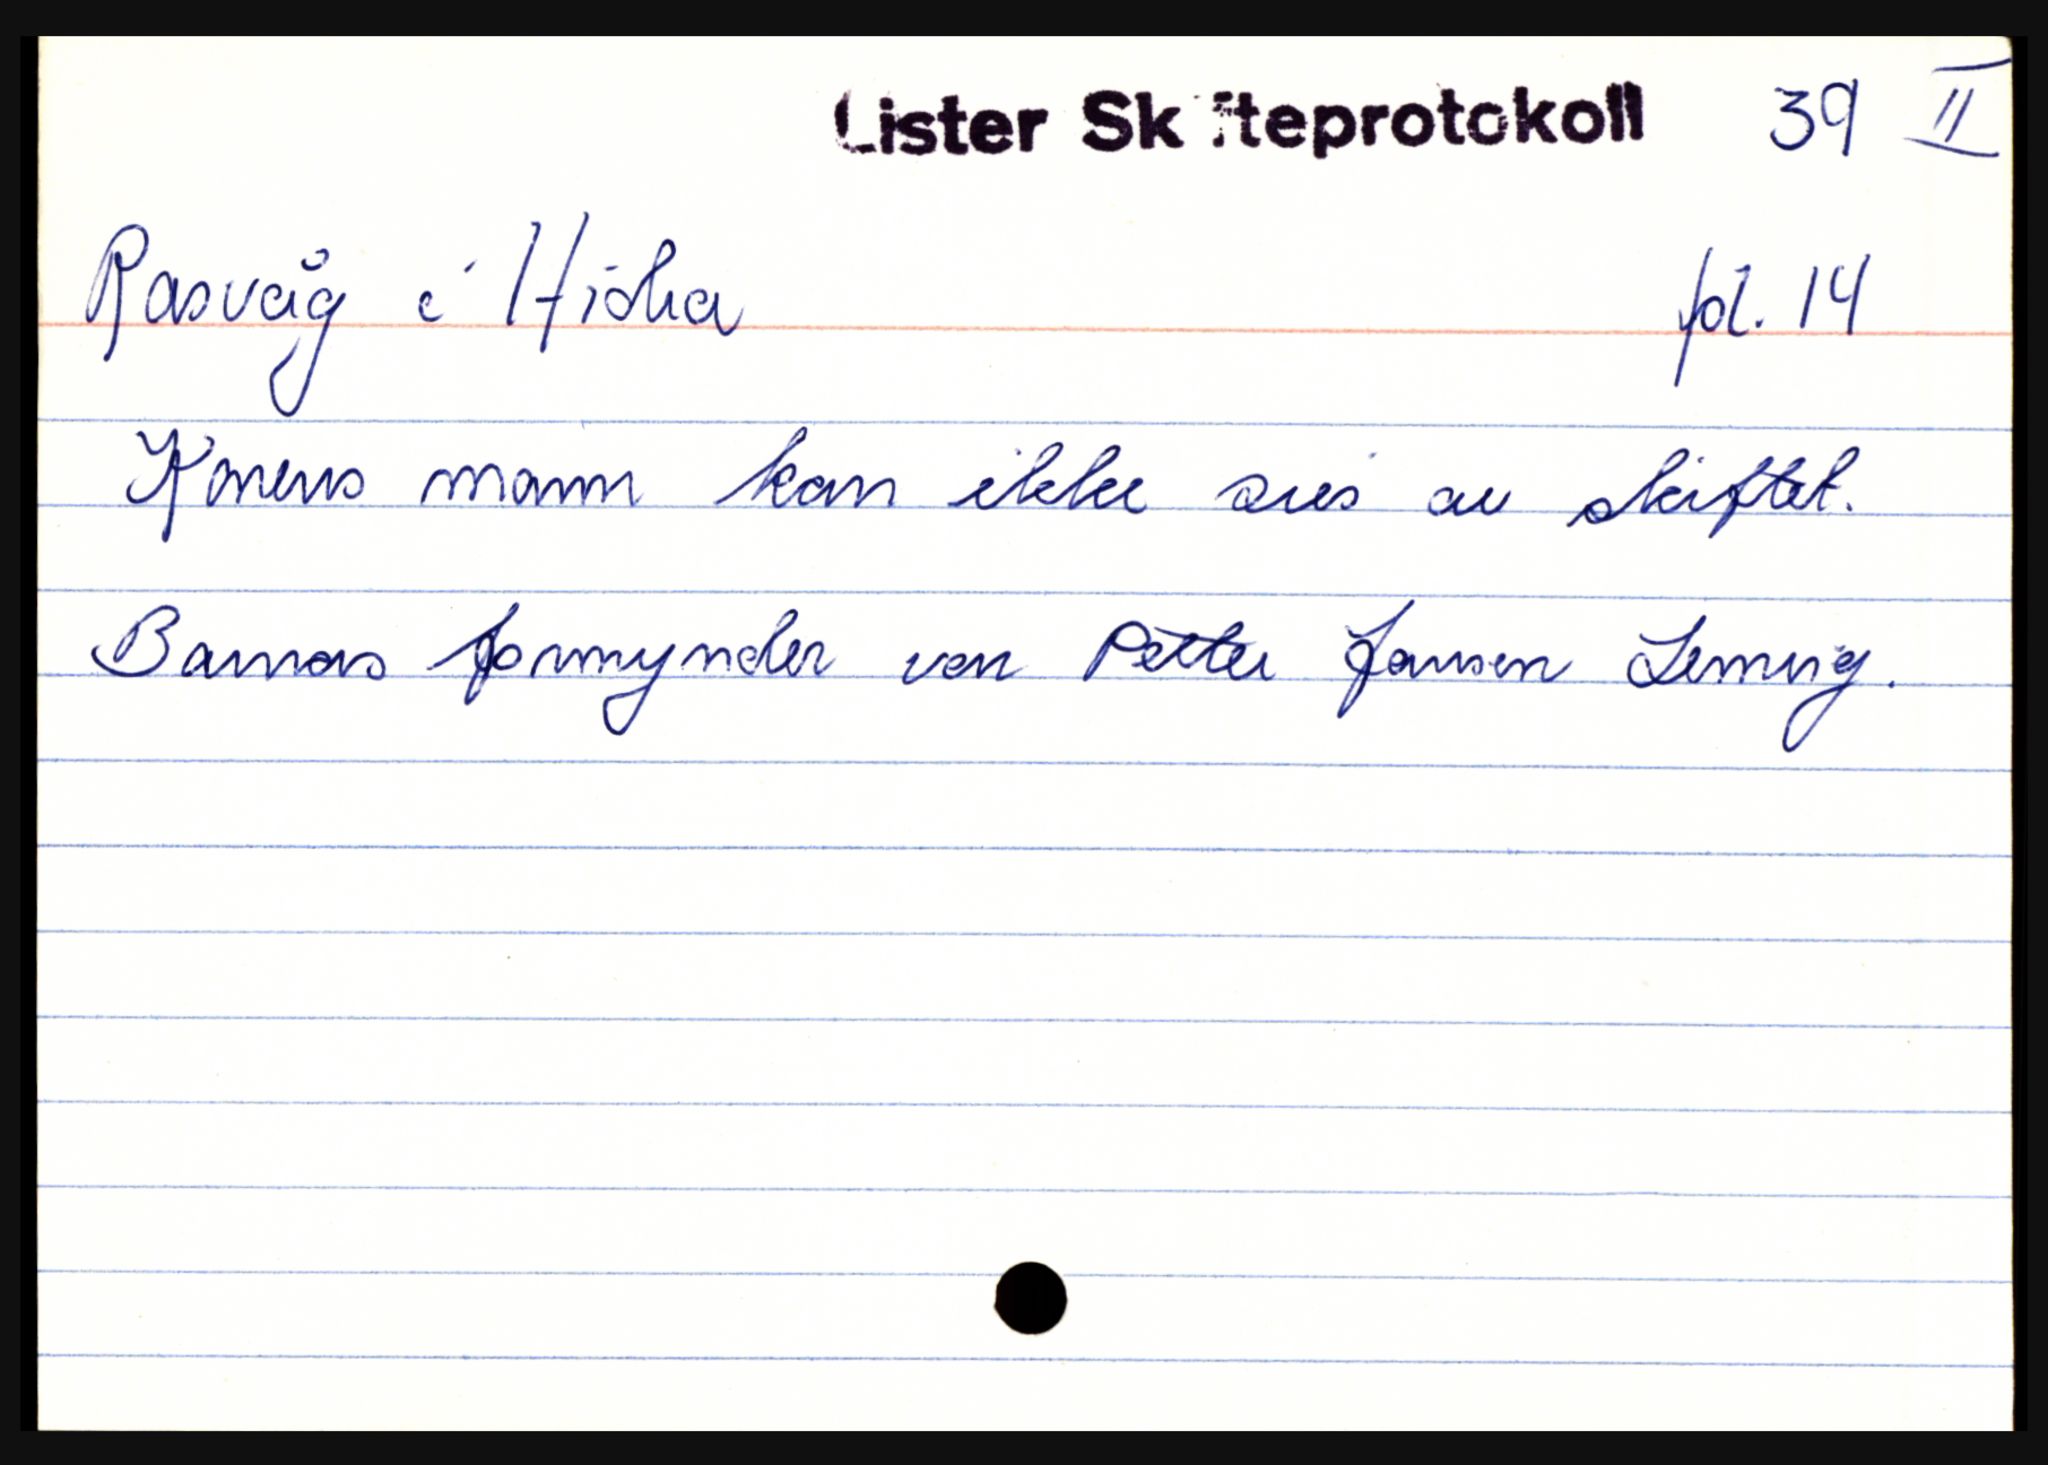 Lister Skifteprotokoll 39 II
Rasvåg i Hidra fol. 14
Konens mann kan ikke sees av skiftet.
Barnas formynder var Petter Jansen Lervig.